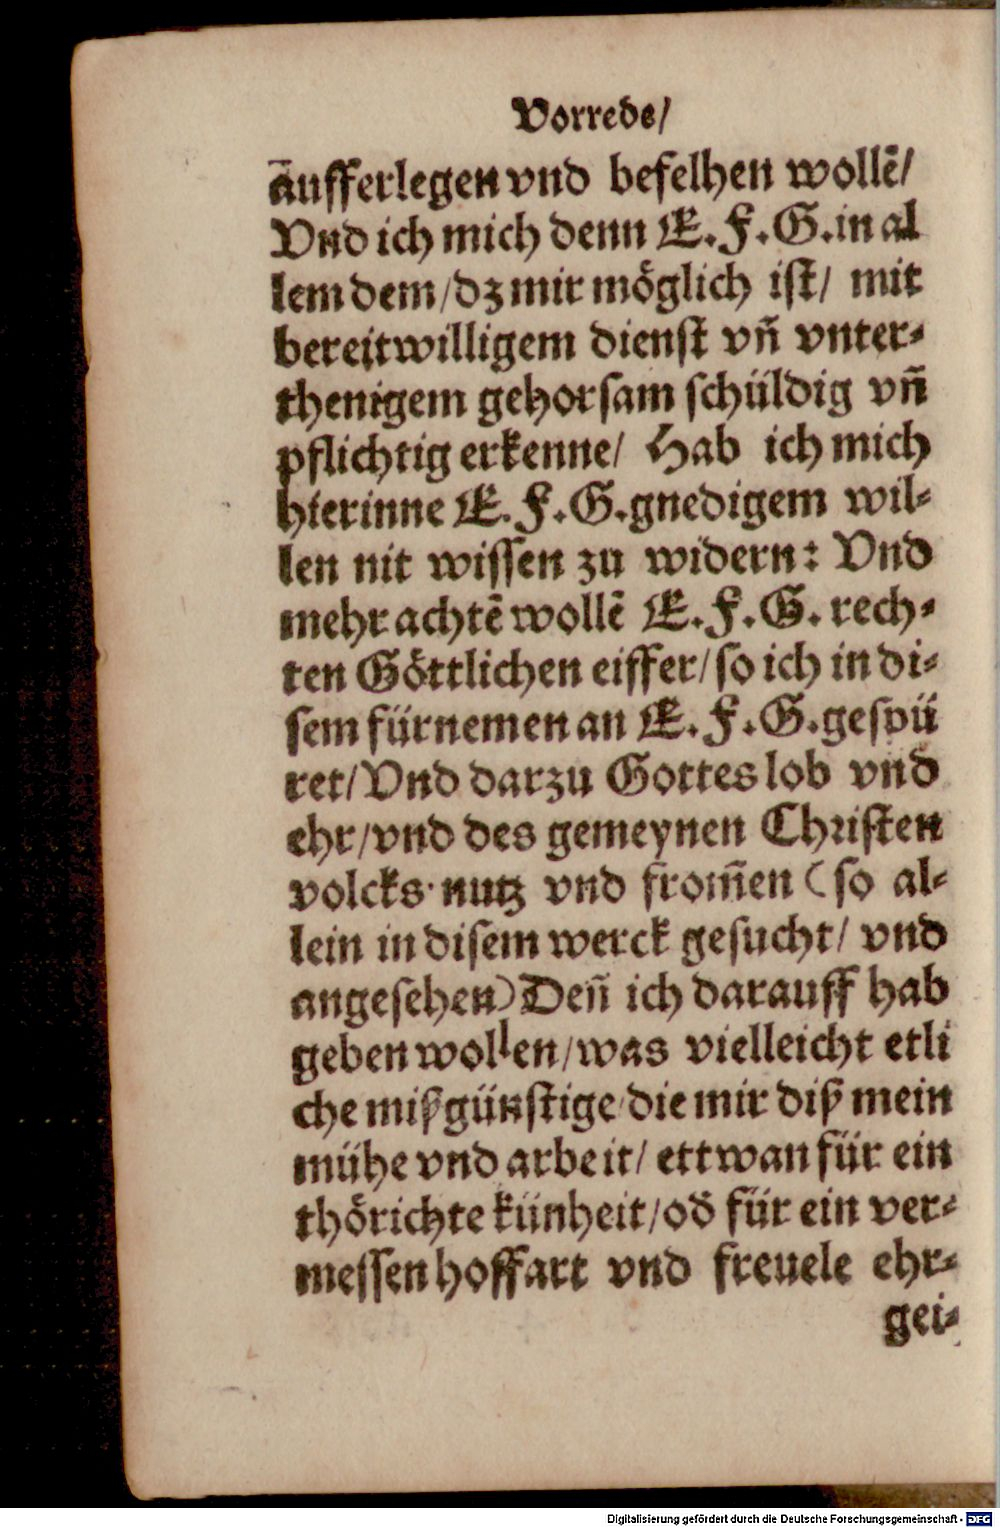 Vorrede/
aufferlegen vnd befelhen wollẽ/
Vnd ich mich denn E. F. G. in al
lem dem/ dz mir möglich ist/ mit
bereitwilligem dienst vñ vnter-
thenigem gehorsam schüldig vñ
pflichtig erkenne/ Hab ich mich
hierinne E. F. G. gnedigem wil-
len nit wissen zu widern: Vnd
mehr achtẽ wollẽ E. F. G. rech-
ten Göttlichen eiffer/ so ich in di-
sem fürnemen an E. F. G. gespü
ret/ Vnd darzu Gottes lob vnd
ehr/ vnd des gemeynen Christen
volcks nutz vnd from̃en (so al-
lein in disem werck gesucht/ vnd
angesehen) Deñ ich darauff hab
geben wollen/ was vielleicht etli
che mißgünstige die mir diß mein
mühe vnd arbeit/ ettwan für ein
thörichte künheit/ od̃ für ein ver-
messen hoffart vnd freuele ehr-
gei-
Digitalisierung gefördert durch die Deutsche Forschungsgemeinschaft - DFG